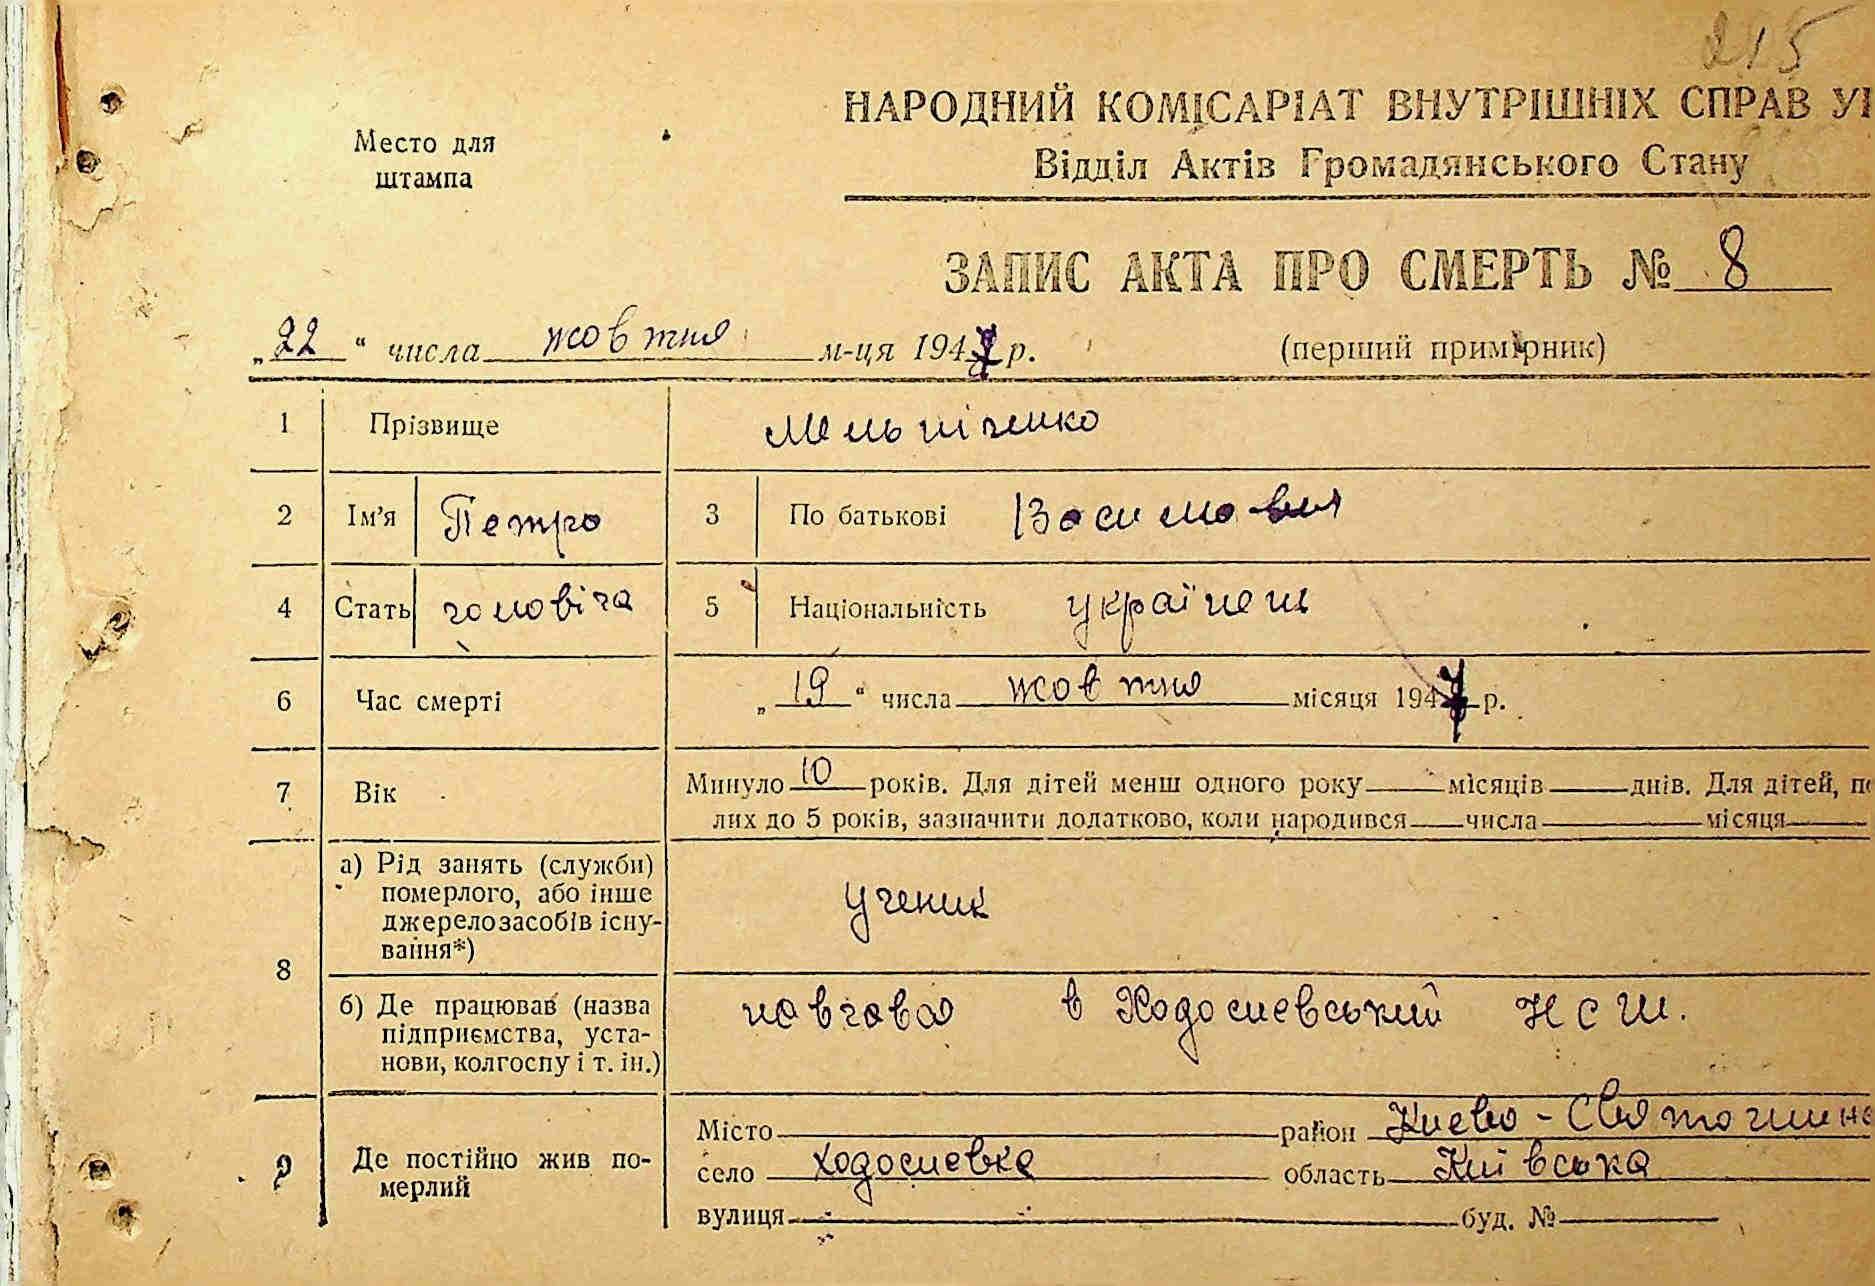 215
НАРОДНИЙ КОМІСАРІАТ ВНУТРІШНІХ СПРАВ
Место для
штампа
Відділ Актів Громадянського Стану
ЗАПИС АКТА ПРО СМЕРТЬ № 8
„22“ числа жовтня м-ця 1947 р. (перший примірник)
1 Прізвище Мельніченко
2 Ім'я Петро 3 По батькові
4 Стать чоловіча 5 Національність українец
6 Час смерті „19“ числа жовтня місяця 1947 р.
7 Вік Минуло 10 років. Для дітей менш одного року місяців днів. Для дітей,
лих до 5 років, зазначити додатково, коли народився числа місяця
8 а) Рід занять (служби)
померлого, або інше
джерело засобів існу-
вання*) ученик
б) Де працював (назва
підприємства, уста-
нови, колгоспу і т. ін.) навчався в Ходосиевський НСШ.
9 Де постійно жив по-
мерлий
Місто район Киево-Святошинс
село Ходосиевка область Київська
вулиця буд. №